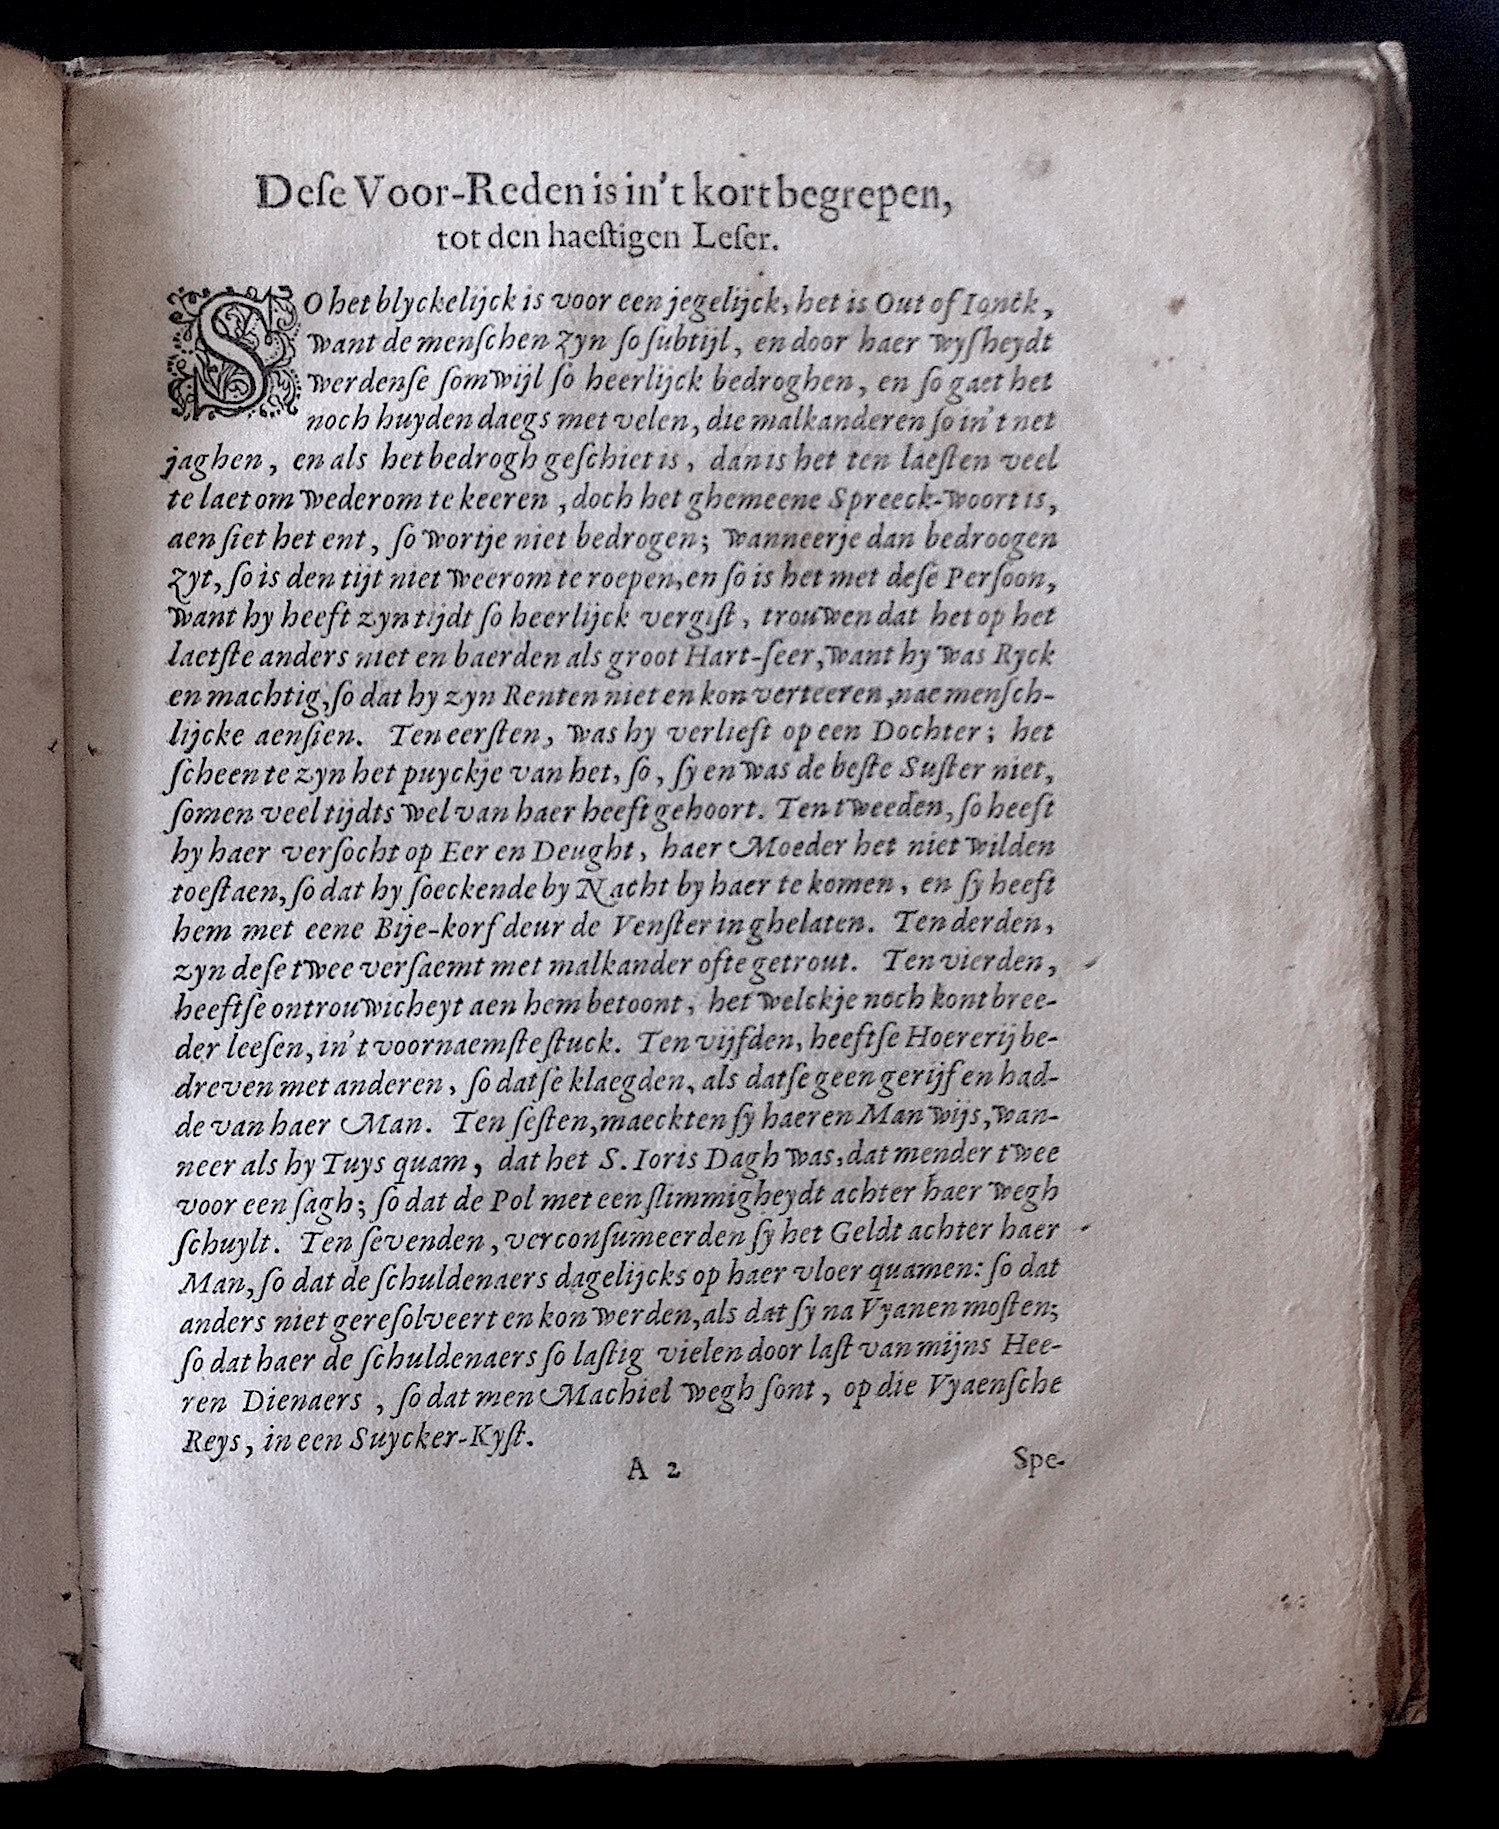 Deſe Voor-Reden is in't kort begrepen,
tot den haeſtigen Leſer.
SO het blyckelijck is voor een jegelijck, het is Out of Ionck,
want de menſchen zyn ſo ſubtijl, en door haer wyſheydt
werdenſe ſomwijl ſo heerlijck bedroghen, en ſo gaet het
noch huyden daegs met velen, die malkanderen ſo in't net
jaghen, en als het bedrogh geſchiet is, dan is het ten laeſten veel
te laet om wederom te keeren, doch het ghemeene Spreeck-woort is,
aen ſiet het ent, ſo wortje niet bedrogen; wanneerje dan bedroogen
zyt, ſo is den tijt niet weerom te roepen, en ſo is het met deſe Perſoon,
want hy heeft zyn tijdt ſo heerlijck vergiſt, trouwen dat het op het
laetſte anders niet en baerden als groot Hart-ſeer, want hy was Ryck
en machtig, ſo dat hy zyn Renten niet en kon verteeren, nae menſch-
lijcke aenſien. Ten eerſten, was hy verlieft op een Dochter; het
ſcheen te zyn het puyckje van het, ſo, ſy en was de beſte Suſter niet,
ſomen veel tijdts wel van haer heeft gehoort. Ten tweeden, ſo heeft
hy haer verſocht op Eer en Deught, haer Moeder het niet wilden
toeſtaen, ſo dat hy ſoeckende by Nacht by haer te komen, en ſy heeft
hem met eene Bije-korf deur de Venſter in ghelaten. Ten derden,
zyn deſe twee verſaemt met malkander ofte getrout. Ten vierden,
heeftſe ontrouwicheyt aen hem betoont, het welckje noch kont bree-
der leeſen, in't voornaemſte ſtuck. Ten vijfden, heeftſe Hoererij be-
dreven met anderen, ſo datſe klaegden, als datſe geen gerijf en had-
de van haer Man. Ten ſeſten, maeckten ſy haeren Man wijs, wan-
neer als hy Tuys quam, dat het S. Ioris Dagh was, dat mender twee
voor een ſagh; ſo dat de Pol met een ſlimmigheydt achter haer wegh
ſchuylt. Ten ſevenden, verconſumeerden ſy het Geldt achter haer
Man, ſo dat de ſchuldenaers dagelijcks op haer vloer quamen: ſo dat
anders niet gereſolveert en kon werden, als dat ſy na Vyanen moſten;
ſo dat haer de ſchuldenaers ſo laſtig vielen door laſt van mijns Hee-
ren Dienaers, ſo dat men Machiel wegh ſont, op die Vyaenſche
Reys, in een Suycker-Kyſt.
A 2
Spe-